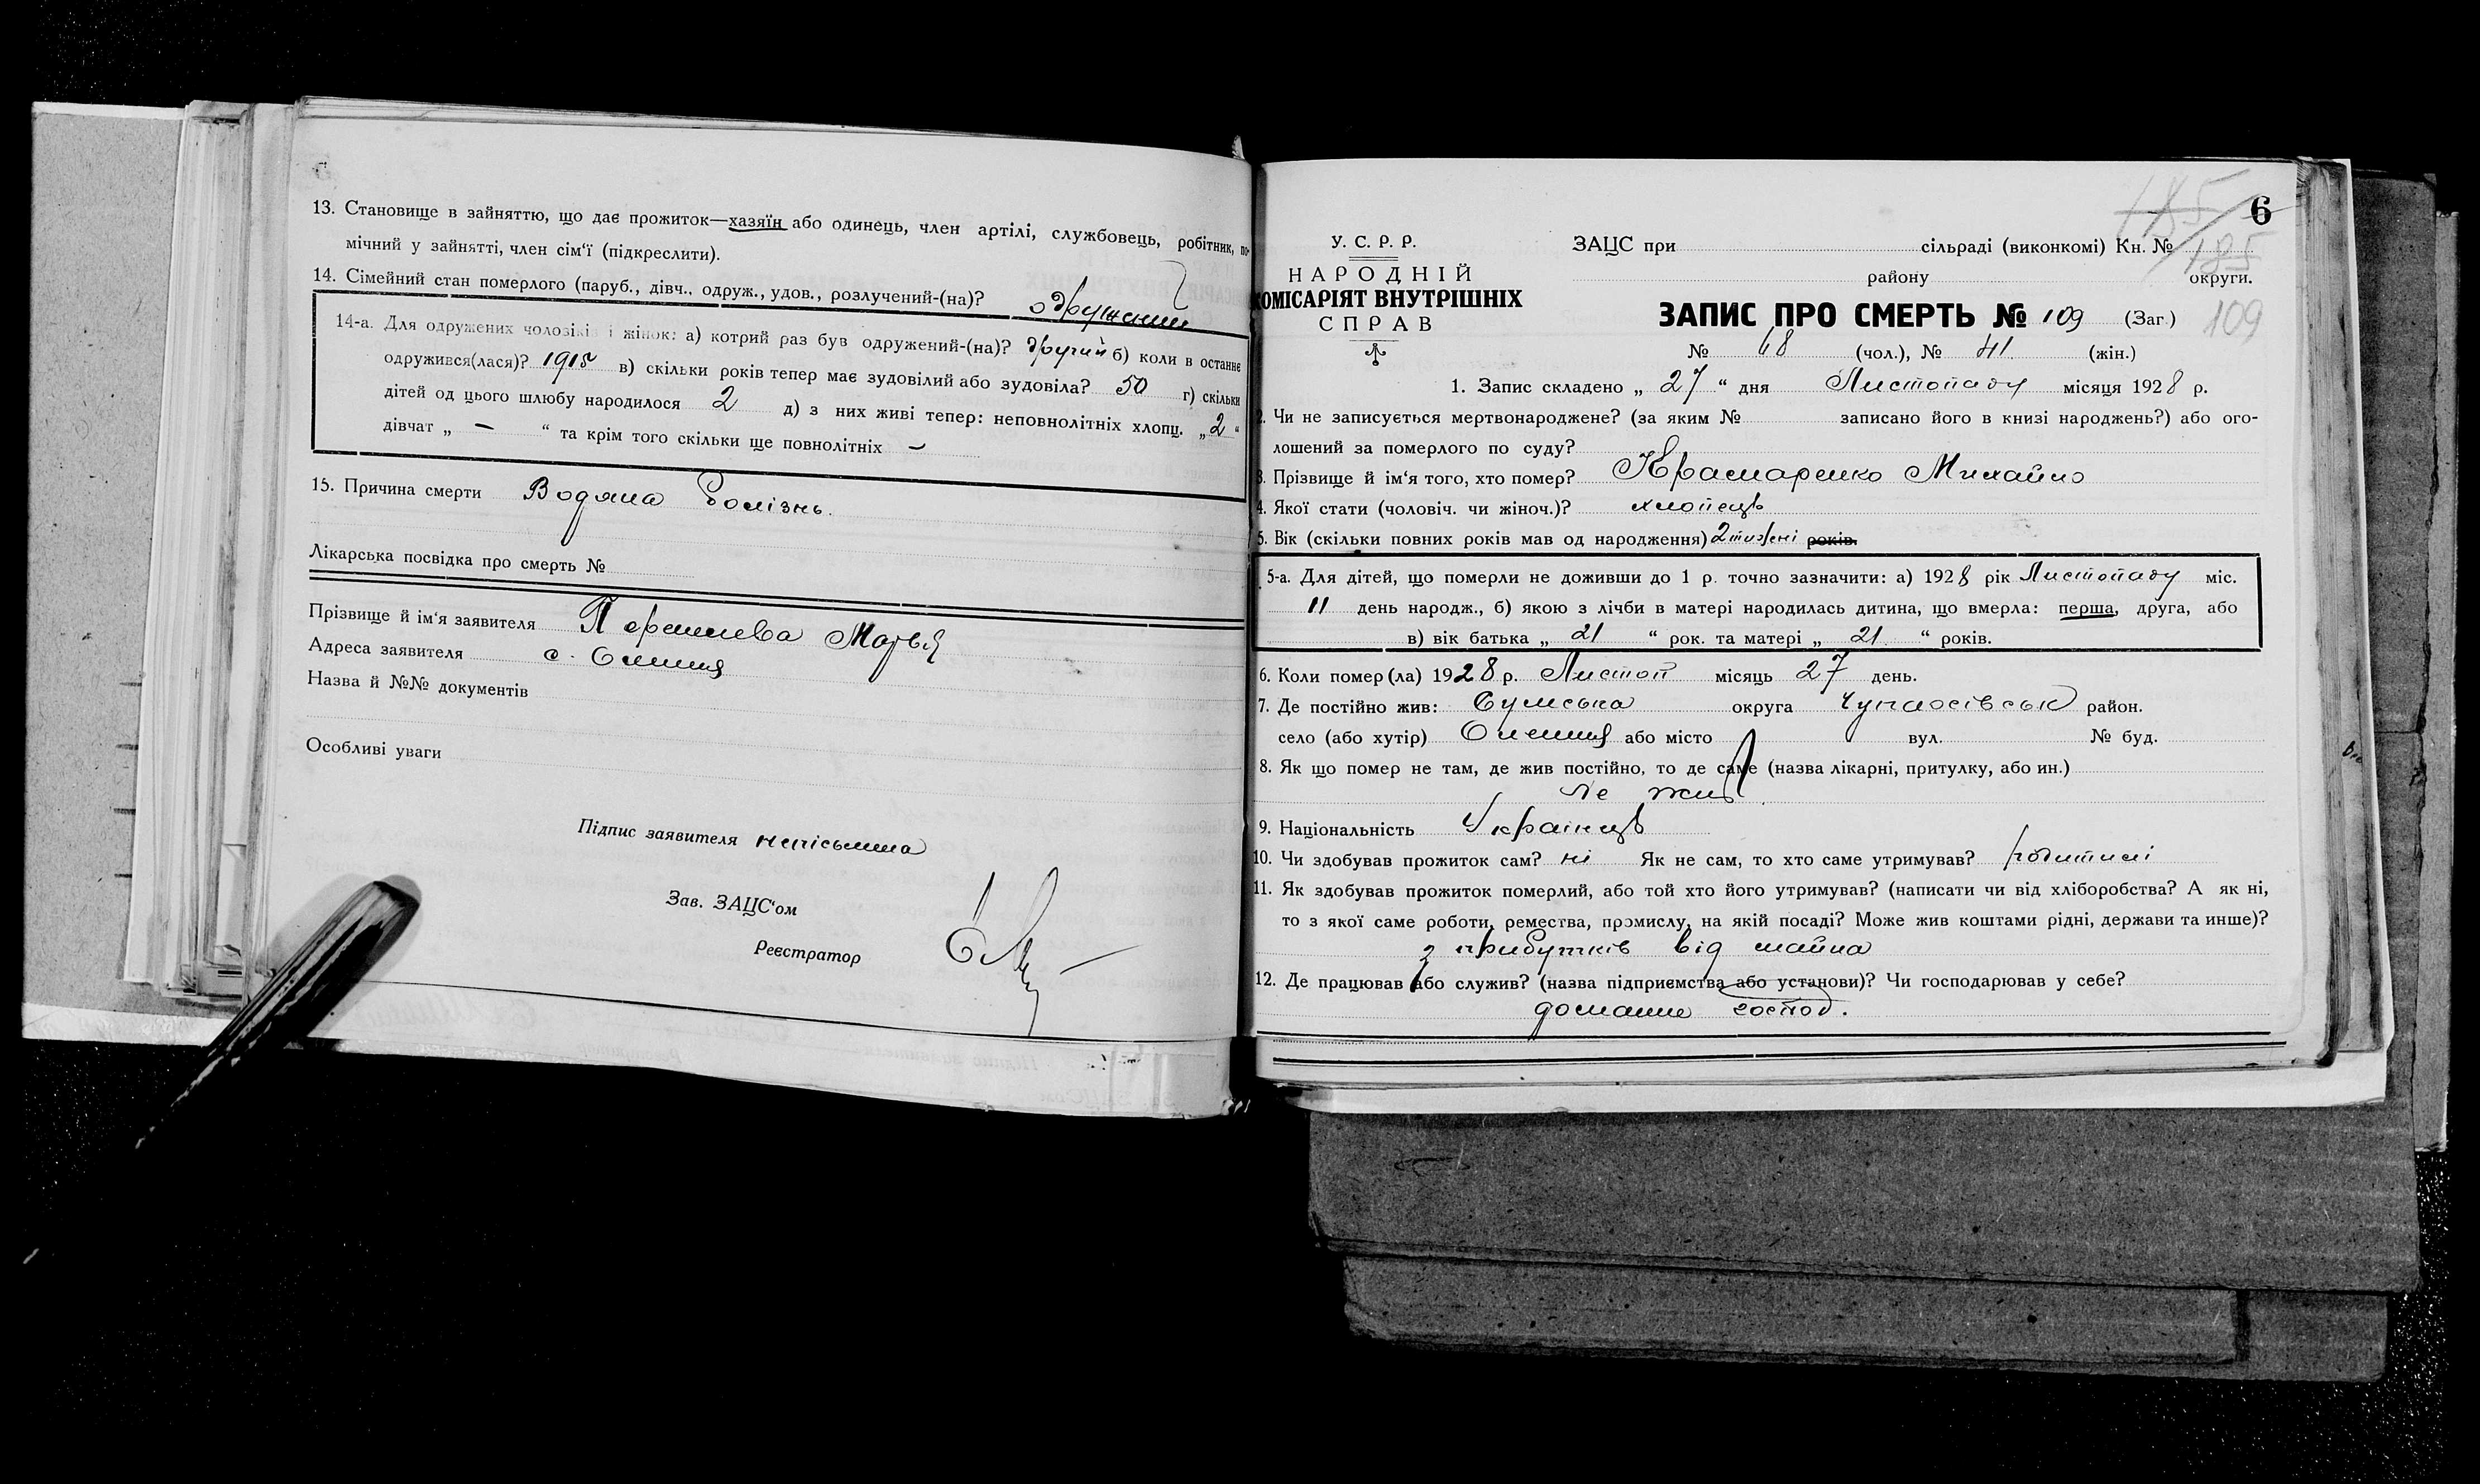 13. Становище в зайняттю, що дає прожиток—хазяїн або одинець, член артілі, службовець, робітник, по-
мічний у зайнятті, член сім'ї (підкреслити).
14. Сімейний стан померлого (паруб., дівч., одруж., удов., розлучений-(на)? одружений
14-а. Для одружених чоловіків і жінок: а) котрий раз був одружений-(на)? другий б) коли в останнє
одружився(лася)? 1915 в) скільки років тепер має зудовілий або зудовіла? 50 г) скільки
дітей од цього шлюбу народилося 2 д) з них живі тепер: неповнолітніх хлопц. „2“
дівчат „ — “ та крім того скільки ще повнолітніх —
15. Причина смерти Водяна болізнь.
Лікарська посвідка про смерть №
Прізвище й ім'я заявителя Марья
Адреса заявителя с.
Назва й №№ документів
Особливі уваги
Підпис заявителя неписьмена
Зав. ЗАЦС'ом
Реєстратор
6
185
185
У. С. Р. Р.
НАРОДНІЙ
КОМІСАРІЯТ ВНУТРІШНІХ
СПРАВ
ЗАЦС при сільраді (виконкомі) Кн. №
району округи.
ЗАПИС ПРО СМЕРТЬ № 109 (Заг.) 109
№ 68 (чол.), № 41 (жін.)
1. Запис складено „ 27 “ дня Листопаду місяця 1928 р.
2. Чи не записується мертвонароджене? (за яким № записано його в книзі народжень?) або ого-
лошений за померлого по суду?
3. Прізвище й ім'я того, хто помер? Михайло
4. Якої стати (чоловіч. чи жіноч.)? хлопець
5. Вік (скільки повних років мав од народження) 2 тижні років.
5-а. Для дітей, що померли не доживши до 1 р. точно зазначити: а) 1928 рік Листопаду міс.
11 день народж., б) якою з лічби в матері народилась дитина, що вмерла: перша, друга, або
в) вік батька „ 21 “ рок. та матері „ 21 “ років.
6. Коли помер(ла) 1928 р. Листоп місяць 27 день.
7. Де постійно жив: Сумська округа район.
село (або хутір) або місто вул. № буд.
8. Як що помер не там, де жив постійно, то де саме (назва лікарні, притулку, або ин.)
9. Національність Українець
10. Чи здобував прожиток сам? ні Як не сам, то хто саме утримував? родителі
11. Як здобував прожиток померлий, або той хто його утримував? (написати чи від хліборобства? А як ні,
то з якої саме роботи, ремества, промислу, на якій посаді? Може жив коштами рідні, держави та инше)?
з прибутків від майна
12. Де працював або служив? (назва підприємства або установи)? Чи господарював у себе?
домашнє господ.